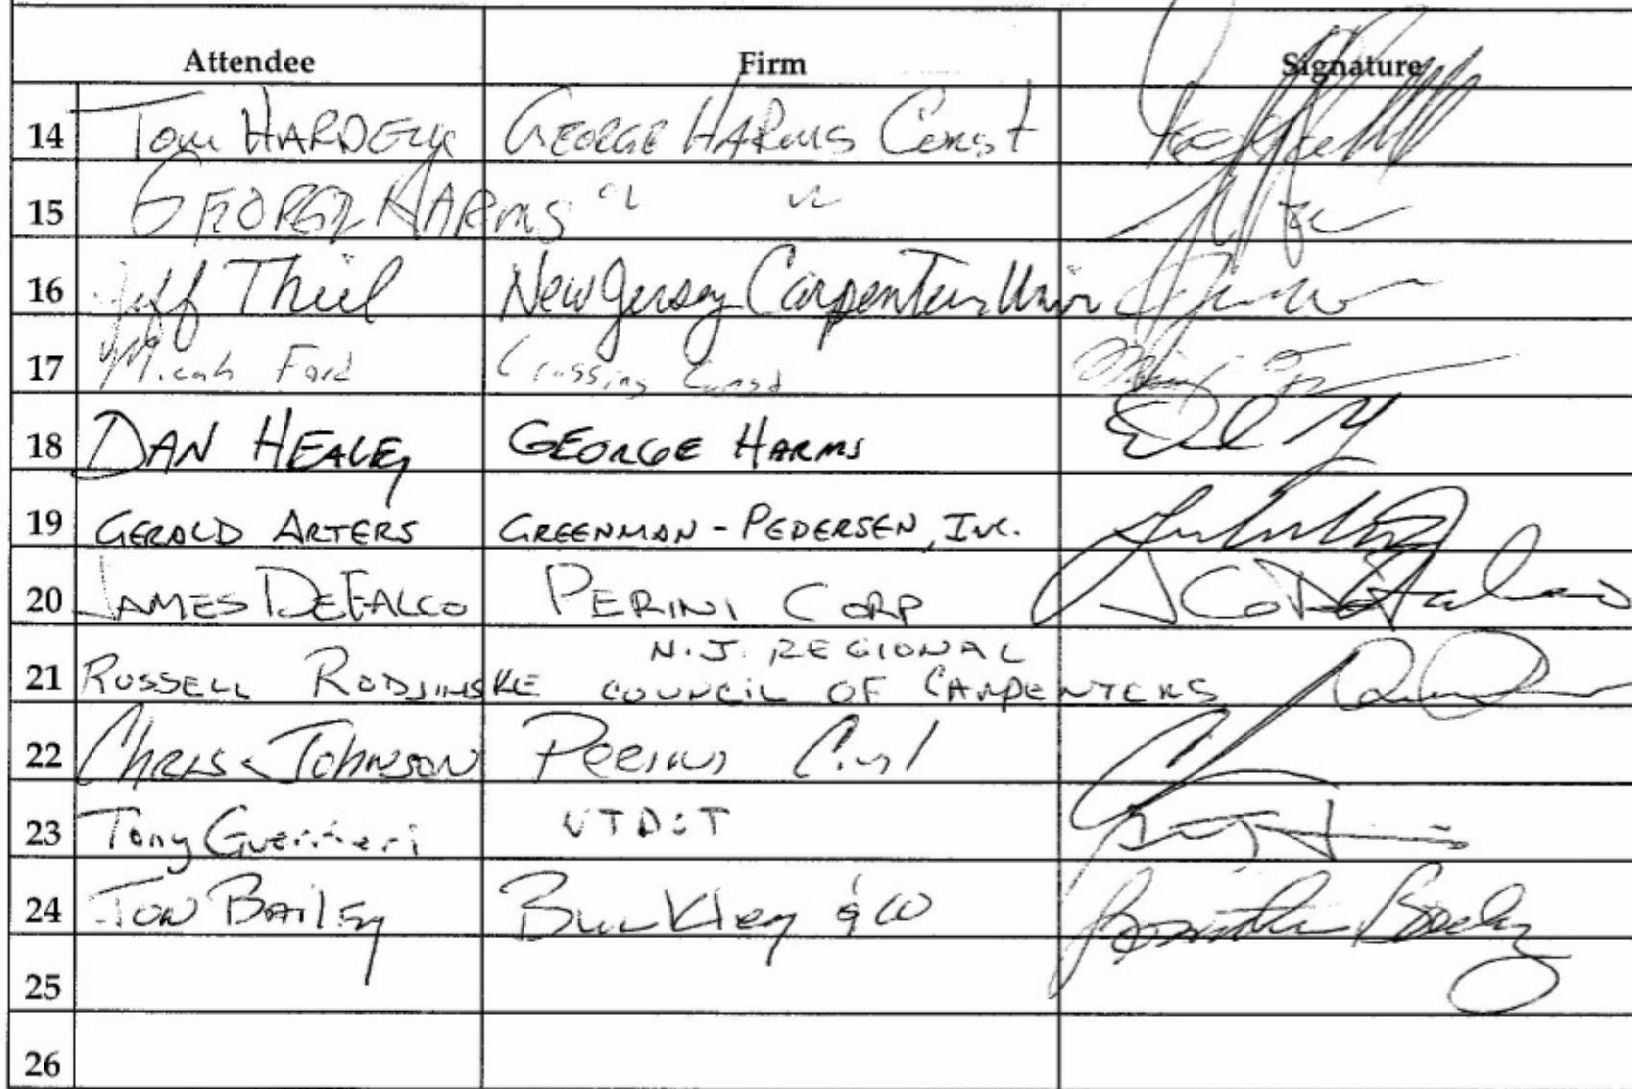 Attendee Firm Signature
14 Tom HARDELL GEORGE HARMS Const
15 GEORGE HARMS " "
16 Jeff Thiel New Jersey Carpenters Union
17 Micah Ford Crossing Const
18 DAN HEALEY GEORGE HARMS
19 GERALD ARTERS GREENMAN - PEDERSEN, INC.
20 JAMES DEFALCO PERINI CORP
N.J. REGIONAL
21 RUSSELL COUNCIL OF CARPENTERS
22 CHRIS JOHNSON PERINI Civil
23 Tony Guerrieri
24 JON BAILEY Buckley & CO
25
26